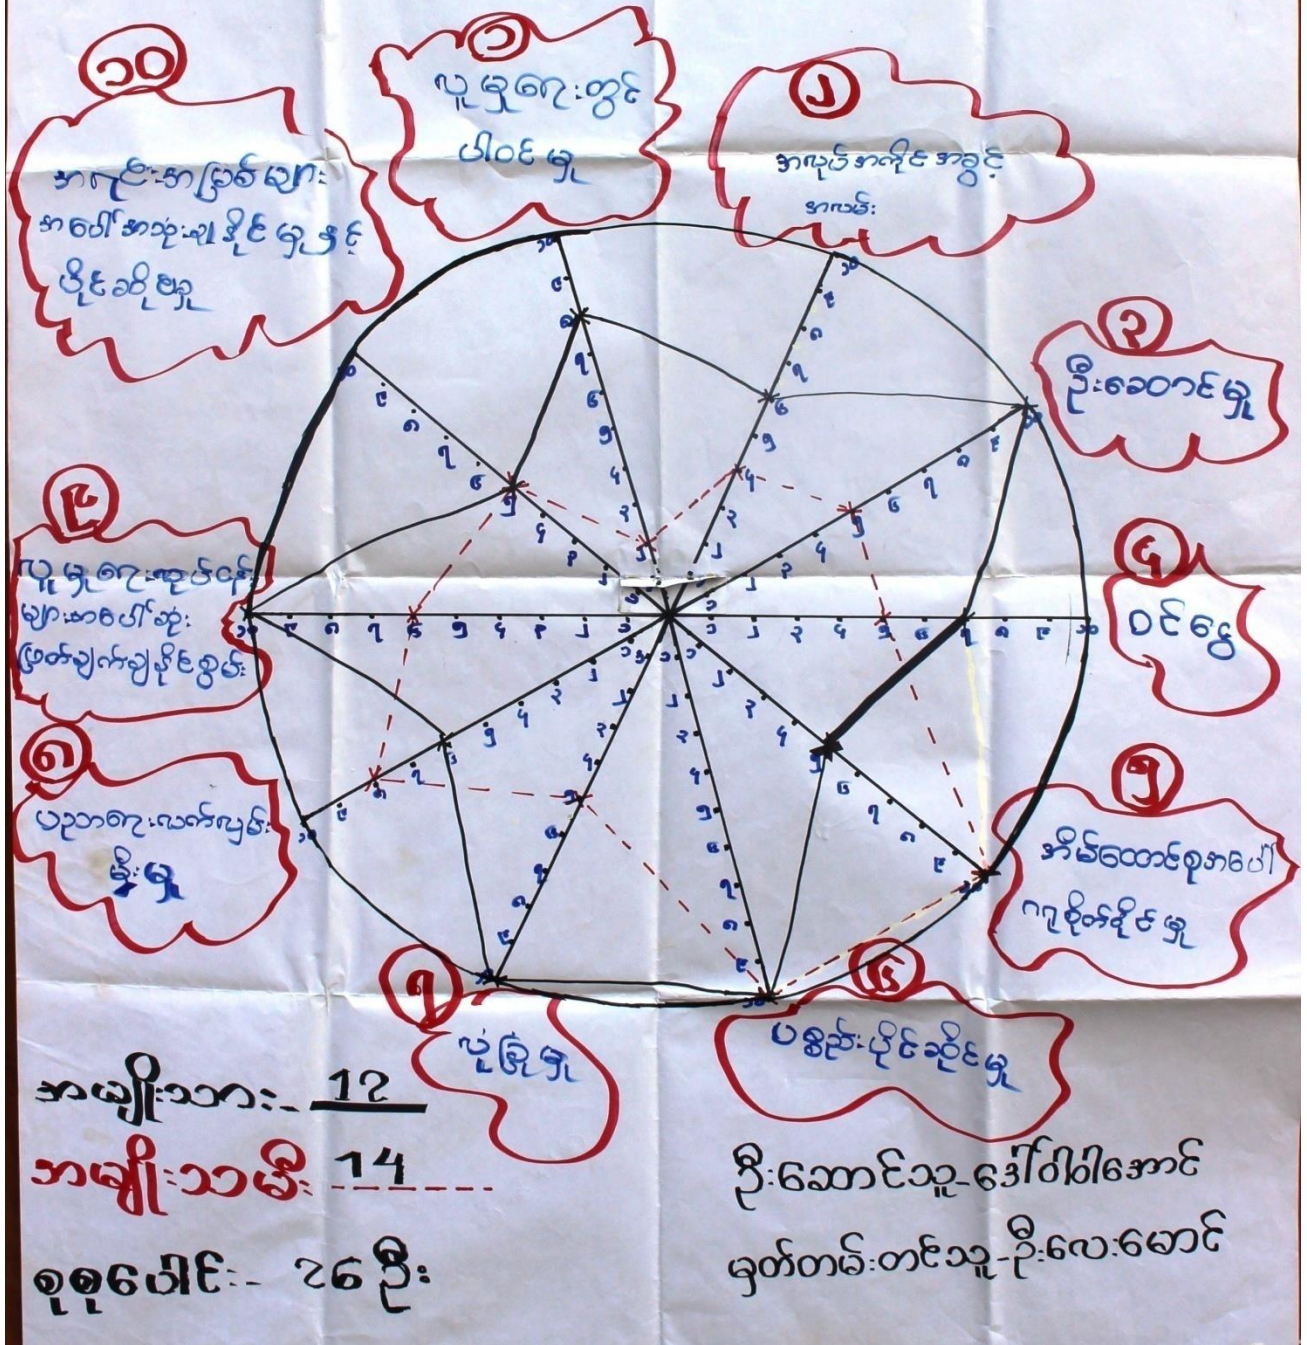 ၁၀
အရင်းအမြစ်များ
အပေါ်အသုံးချနိုင်မှုနှင့်
ပိုင်ဆိုင်မှု
၁
လူမှုရေးတွင်
ပါဝင်မှု
၂
အလုပ်အကိုင်အခွင့်
အလမ်း
၃
ဦးဆောင်မှု
၄
ဝင်ငွေ
၅
အိမ်ထောင်စုအပေါ်
ဂရုစိုက်နိုင်မှု
၆
ပစ္စည်းပိုင်ဆိုင်မှု
၇
လုံခြုံမှု
၈
ပညာရေးလက်လှမ်း
မှီမှု
၉
လူမှုရေးလုပ်ငန်း
များအပေါ်ဆုံး
ဖြတ်ချက်ချနိုင်စွမ်း
အမျိုးသား- 12
အမျိုးသမီး 14
စုစုပေါင်း- ၂၆ ဦး
ဦးဆောင်သူ-ဒေါ်ဝါဝါအောင်
မှတ်တမ်းတင်သူ-ဦးလေးမောင်